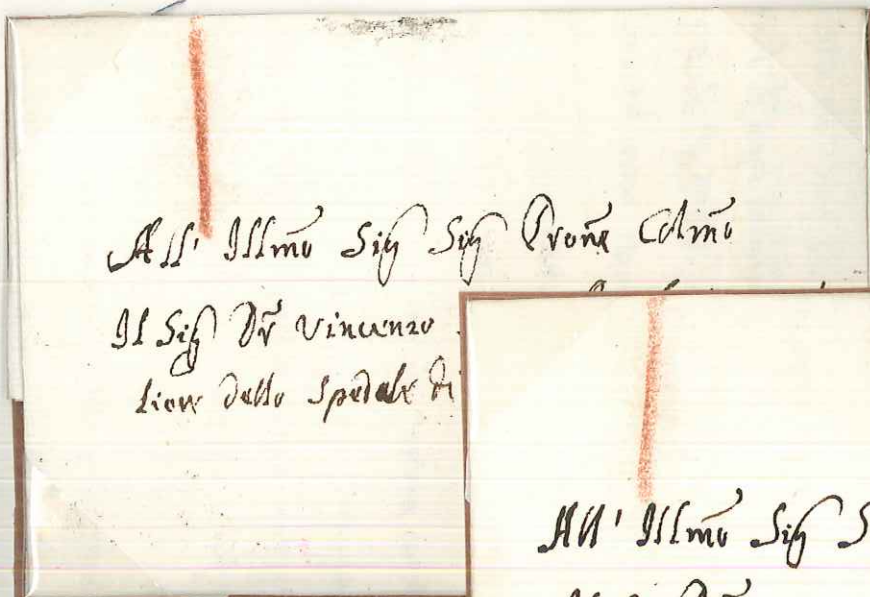 All' Illmo Sig Sig Prone Colmo
Il Sig Dr Vincenzo
tione dello Spedale di
All' Illmo Sig S